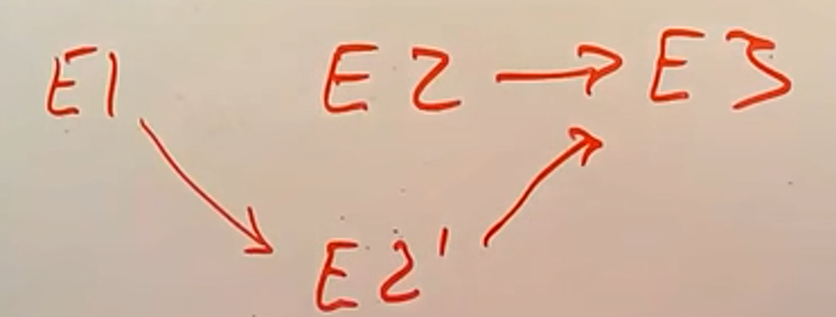 E1 E2 → E3
E2'